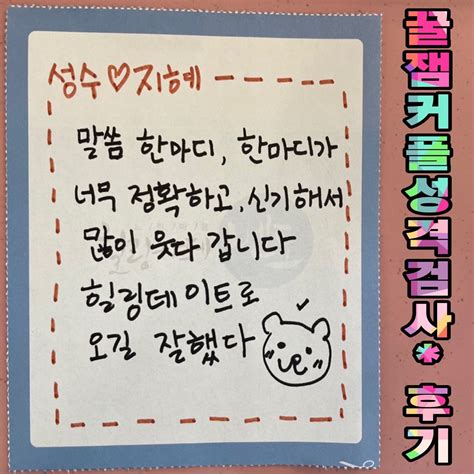 성수♡지혜
말씀 한마디, 한마디가
너무 정확하고, 신기해서
많이 웃다 갑니다
힐링데이트로
오길 잘했다
꿀잼커플성격검사* 후기